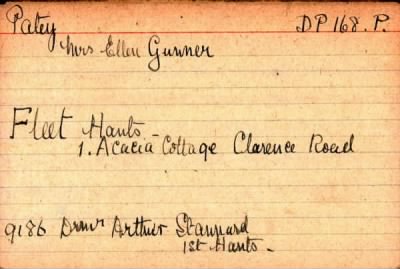 Patey DP 168. P.
Mrs. Ellen Gunner
Fleet Hants -
1. Acacia Cottage Clarence Road
9186 Drmr Arthur Stannard
1st Hants -